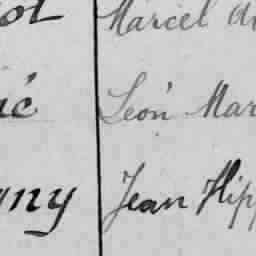 ot Marcel
ié Léon Mar
gny Jean Hipp